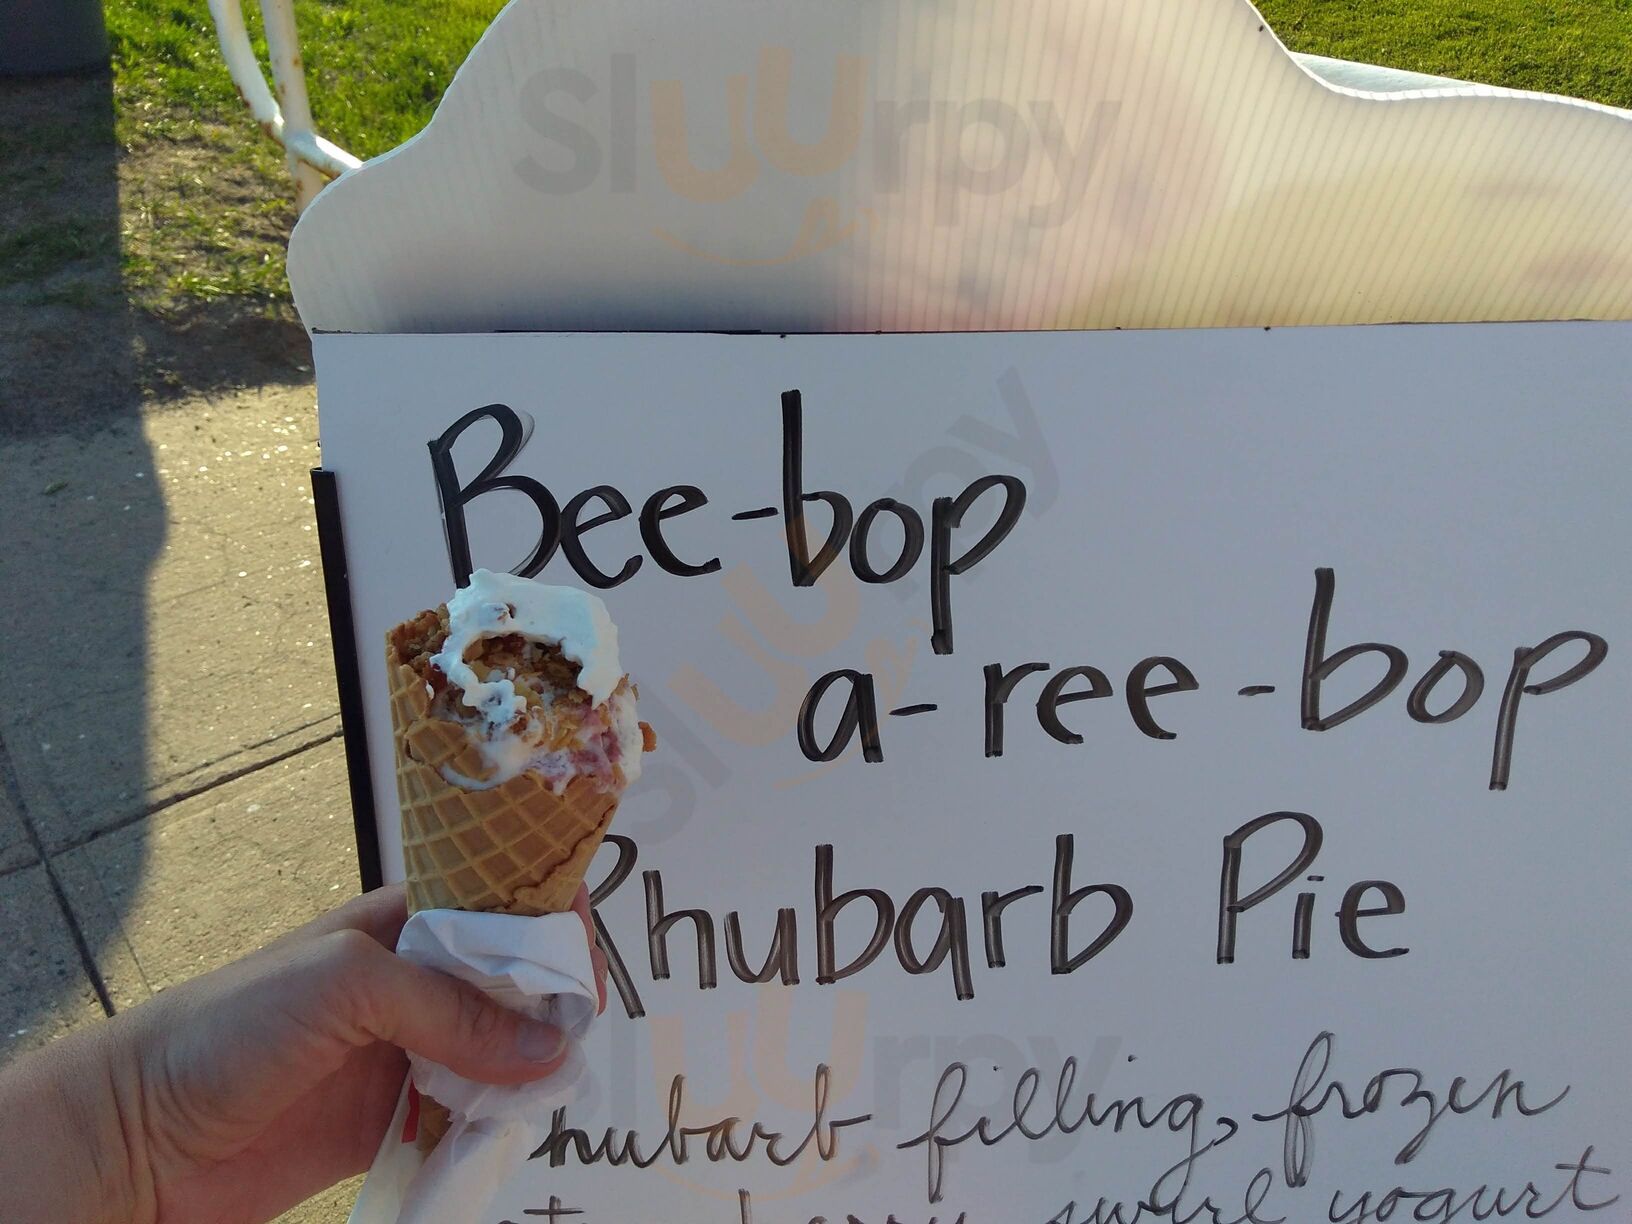 Sluurpy
Bee-bop
Sluurpy
a-ree-bop
Rhubarb Pie
Sluurpy
rhubarb filling, frozen
swirl yogurt